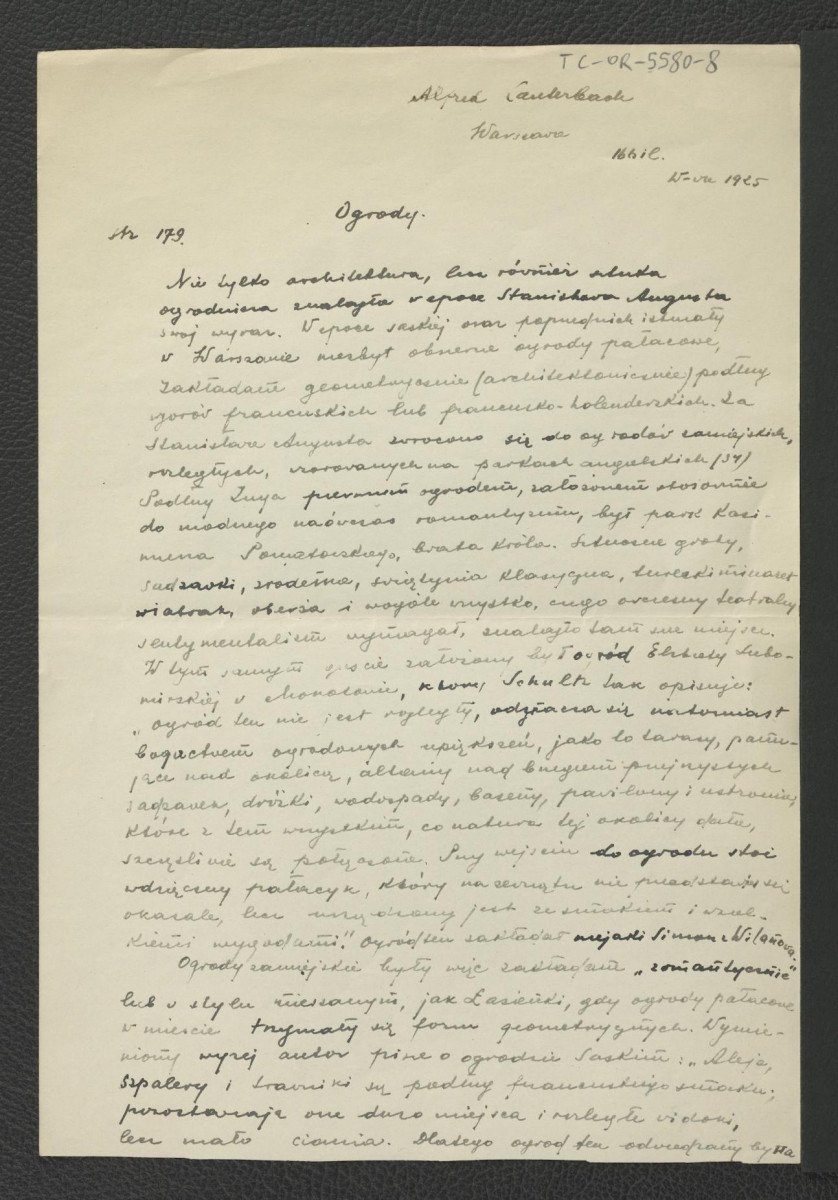 TC-OR-5580-8
Alfred Lauterbach
Warszawa
Bibil.
W-wa 1925
Ogrody.
str 179.
Nie tylko architektura, lecz również sztuka
ogrodnicza znalazła w epoce Stanisława Augusta
swój wyraz. W epoce saskiej oraz poprzednich istniały
w Warszawie niezbyt obszerne ogrody pałacowe,
zakładane geometrycznie (architektonicznie) podług
wzorów francuskich lub francusko-holenderskich. Za
Stanisława Augusta zwrócono się do ogrodów zamiejskich,
rozległych, wzorowanych na parkach angielskich (34)
Podług Zuga pierwszym ogrodem, założonem stosownie
do modnego naówczas romantyzmu, był park Kazi-
mierza Poniatowskiego, brata króla. Sztuczne groty,
sadzawki, źródełka, świątynia klasyczna, turecki minaret
wiatrak, oberża i wogóle wszystko, czego ówczesny teatralny
sentymentalizm wymagał, znalazło tam swe miejsce.
W tym samym guście założony był ogród Elżbiety Lubo-
mirskiej w Mokotowie, który Schultz tak opisuje:
"ogród ten nie jest rozległy, odznacza się natomiast
bogactwem ogrodowych upiększeń, jako to tarasy, panu-
jące nad okolicą, altany nad brzegiem przejrzystych
sadzawek, dróżki, wodospady, baseny, pawilony i ustronia,
które z tem wszystkim, co natura tej okolicy dała,
szczęśliwie są połączone. Przy wejściu do ogrodu stoi
wdzięczny pałacyk, który na zewnątrz nie przedstawia się
okazale, lecz urządzony jest ze smakiem i wszel-
kiemi wygodami." Ogród ten zakładał niejaki Simon z Wilanowa.
Ogrody zamiejskie były więc zakładane "romantycznie"
lub w stylu mieszanym, jak Łazienki, gdy ogrody pałacowe
w mieście trzymały się form geometrycznych. Wymie-
niony wyżej autor pisze o ogrodzie Saskim: "Aleje,
szpalery i trawniki są podług francuskiego smaku;
pozostawiają one dużo miejsca i rozległe widoki,
lecz mało cienia. Dlatego ogród ten odwiedzany bywa